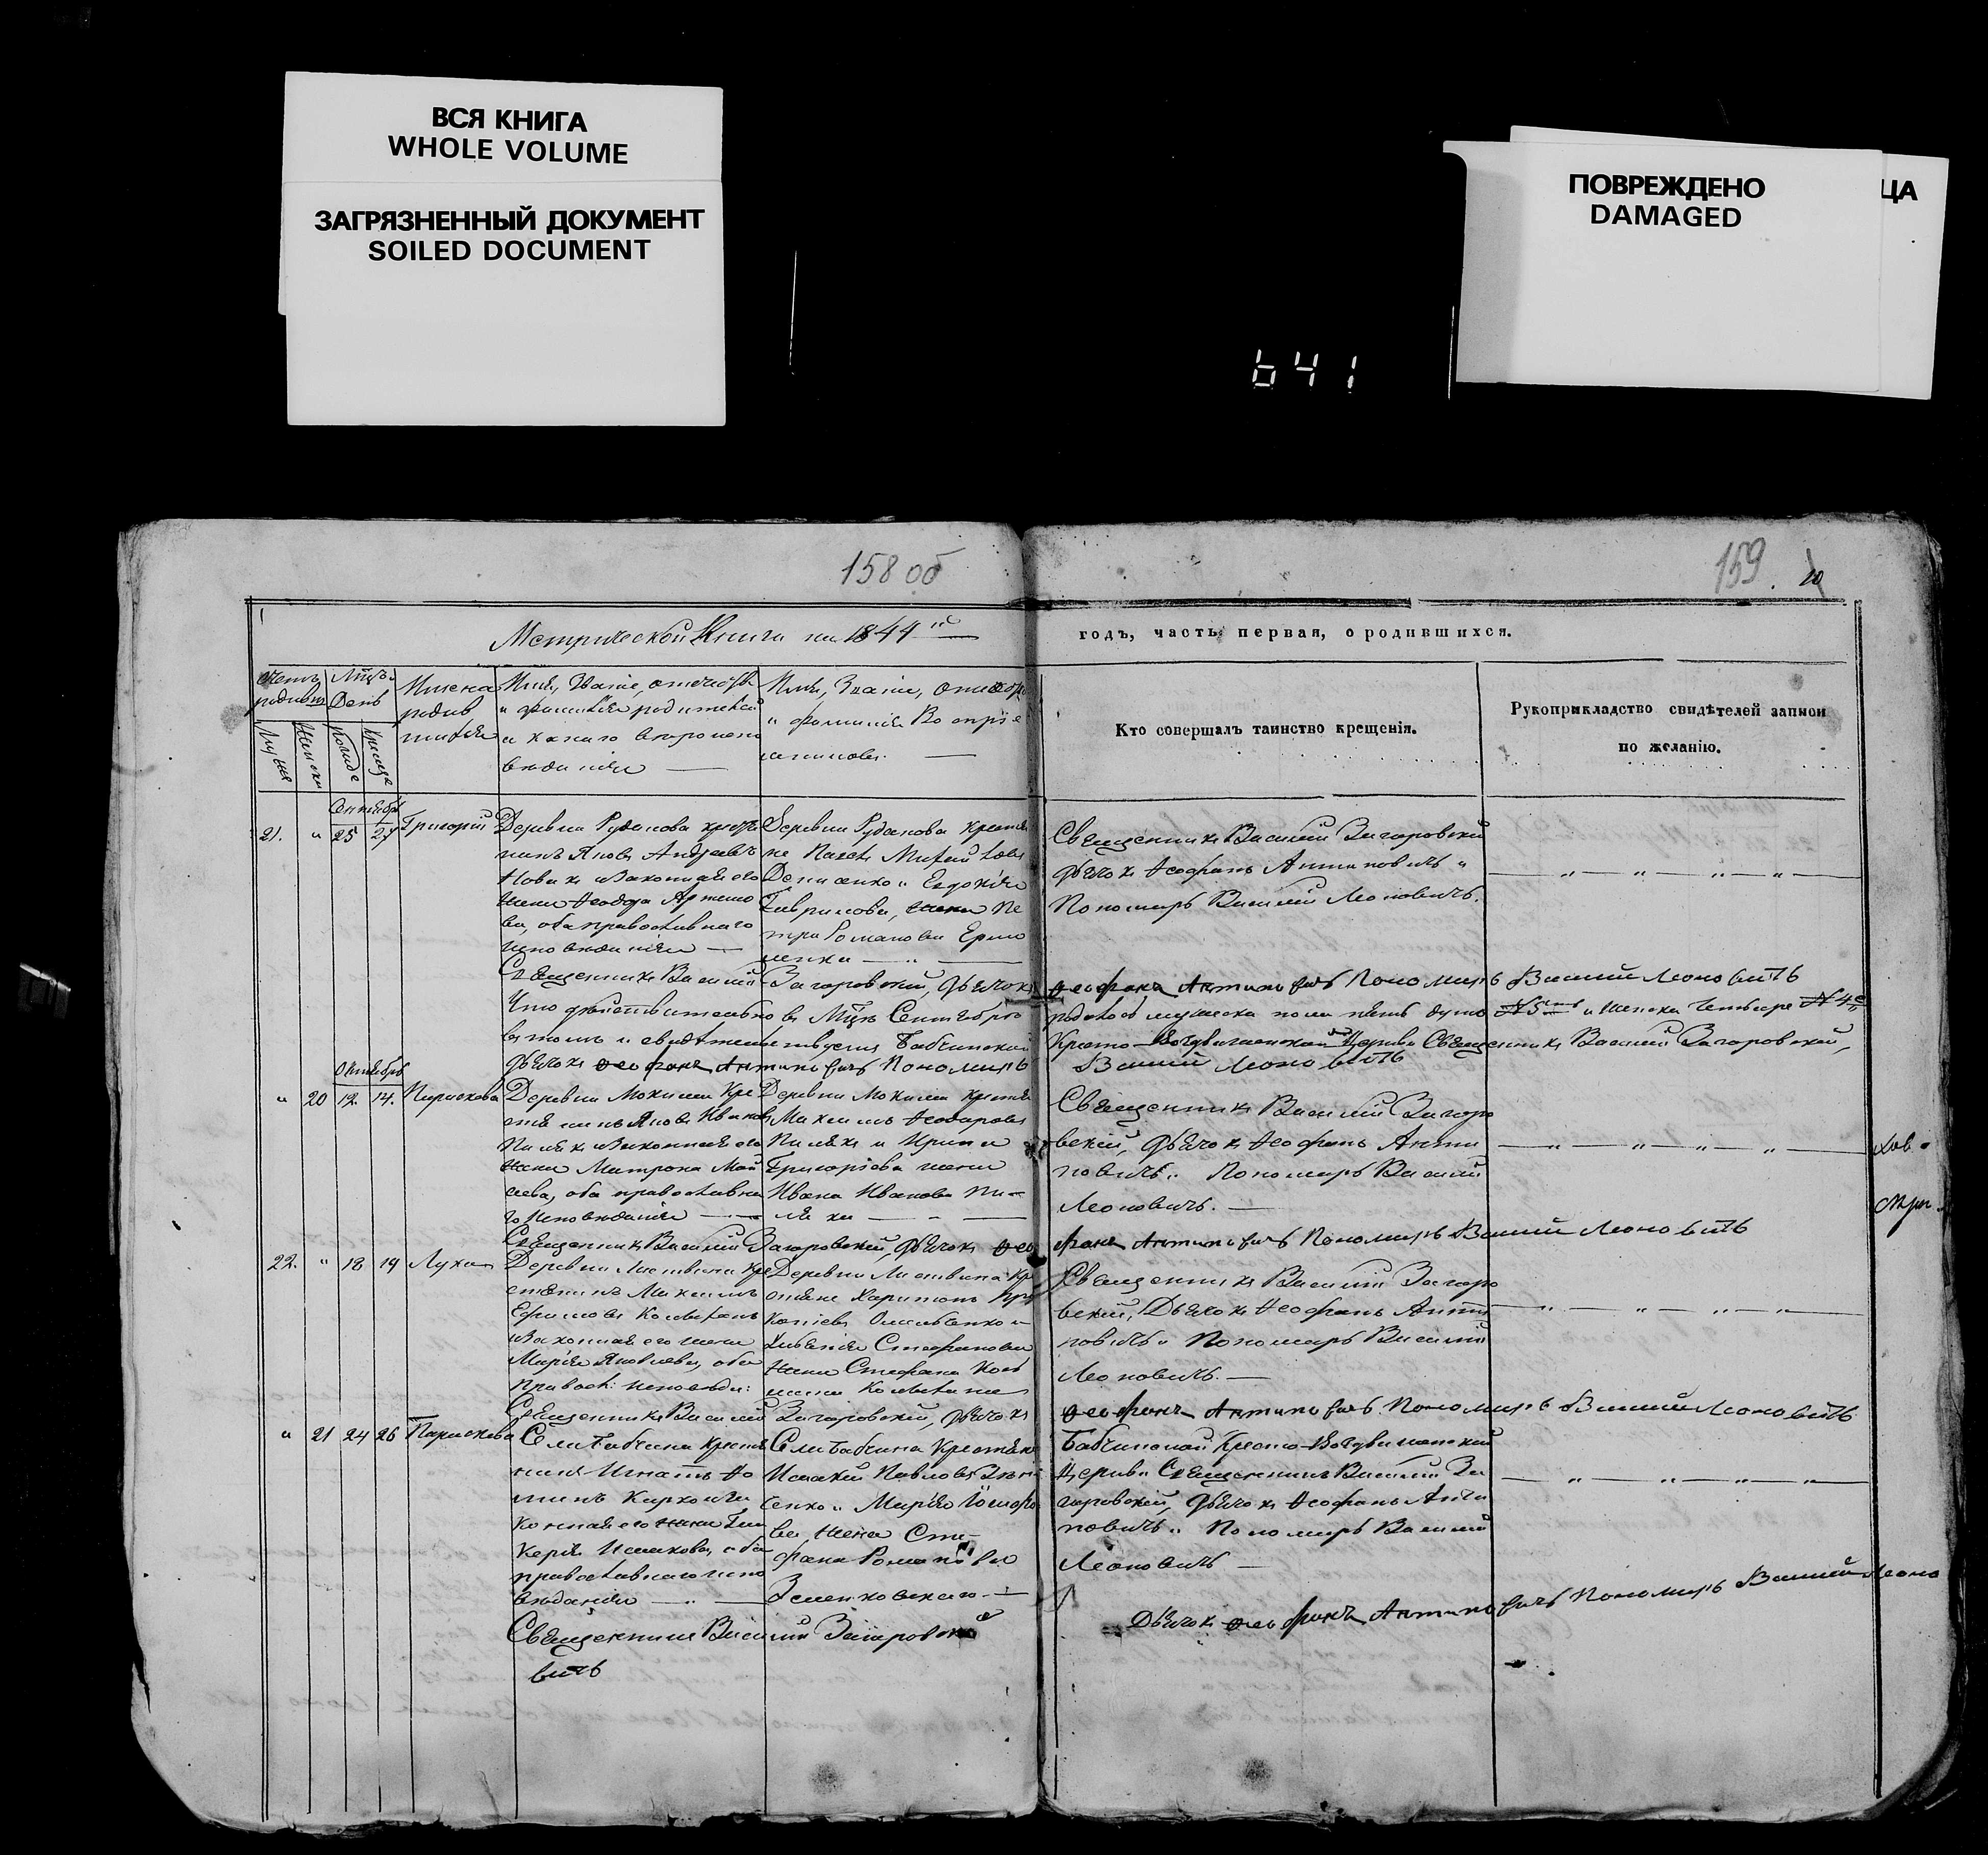 ВСЯ КНИГА
WHOLE VOLUME
ЗАГРЯЗНЕННЫЙ ДОКУМЕНТ
SOILED DOCUMENT
ПОВРЕЖДЕНО
DAMAGED
ЦА
641
158 об
159
10
Метрической Книги на 1844 й
годъ, часть первая, о родившихся.
Мѣцъ и
День
Имена
родив
шихся
Имя, Званіе, отечество
и фамилія родителей
и какого вѣроиспо
вѣданія
Имя, Званіе, отечество
и фамилія Воспріе
мниковъ.
Кто совершалъ таинство крещенія.
Рукоприкладство свидѣтелей записи
по желанію.
Сентябрь
21. " 25 27 Григорій
Деревни Рудакова кресть
нинъ Яковъ Андреевъ
Новикъ и Законная его
жена Ѳеодора Артемо
ва, оба православнаго
исповѣданія
Деревни Рудакова крестья
не
Денисенко и Евдокія
Гаврилова, жена Пе
тра Романова Ермо
ленка
Священникъ Василій Загоровскій
Дьячокъ Ѳеофанъ Антиповичь и
Пономарь Василій Леоновичь.
Священникъ Василій Загоровскій, Дьячокъ Ѳеофанъ Антиповичь Пономарь Василій Леоновичь
Что дѣйствительно въ Мцѣ Сентябрѣ родилось мужеска пола пять душъ № 5 и женска четыре № 4е
въ томъ и свидѣтельствуемъ Бабчинской Кресто-Воздвиженской Церкви Священникъ Василій Загоровскій,
Дьячокъ Ѳеофанъ Антиповичь Пономарь Василій Леоновичь
Октябрь
" 20 12. 14. Параскева
Деревни Мокиша Кре
стьянинъ Яковъ Ивановъ
Пиляк и Законная его
жена Матрона Мой
сеева, оба православна
го исповѣданія
Деревни Мокиша крестья
Максимъ Ѳеодоровъ
и Ирина
Григоріева жена
Ивана Иванова Пи-
ляка
Священникъ Василій Загоро
вскій, Дьячокъ Ѳеофанъ Анти
повичь и Пономарь Василій
Леоновичь.
Священникъ Василій Загоровскій, Дьячокъ Ѳеофанъ Антиповичь Пономарь Василій Леоновичь
22. " 18 19 Лука
Деревни Листвина Кре
стьянинъ Максимъ
Ефимовъ
и Законная его жена
Марія Яковлева, оба
Правосл: исповѣда:
Деревни Листвина Кр
стьяне Харитонъ Про
копіевъ
Стефанова
жена Стефана
Священникъ Василій Загоро
вскій, Дьячокъ Ѳеофанъ Анти
повичь и Пономарь Василій
Леоновичь.
Священникъ Василій Загоровскій, Дьячокъ Ѳеофанъ Антиповичь Пономарь Василій Леоновичь
" 21 24 26 Параскева
Села Бабчина Кресть
нинъ Игнатъ Ѳо
минъ
конная его жена Гли
керія Исакова, оба
православнаго испо
вѣданія
Села Бабчина Крестьяне
Исакій Павловъ
сенко и Марія
ва жена Сте-
фана Романова
Зеленковскаго
Бабчинской Кресто-Воздвиженской
Церкви Священникъ Василій За
горовскій, Дьячокъ Ѳеофанъ Анти
повичь и Пономарь Василій
Леоновичь
Священникъ Василій Загоровскій Дьячокъ Ѳеофанъ Антиповичь Пономарь Василій Леоно
вичь